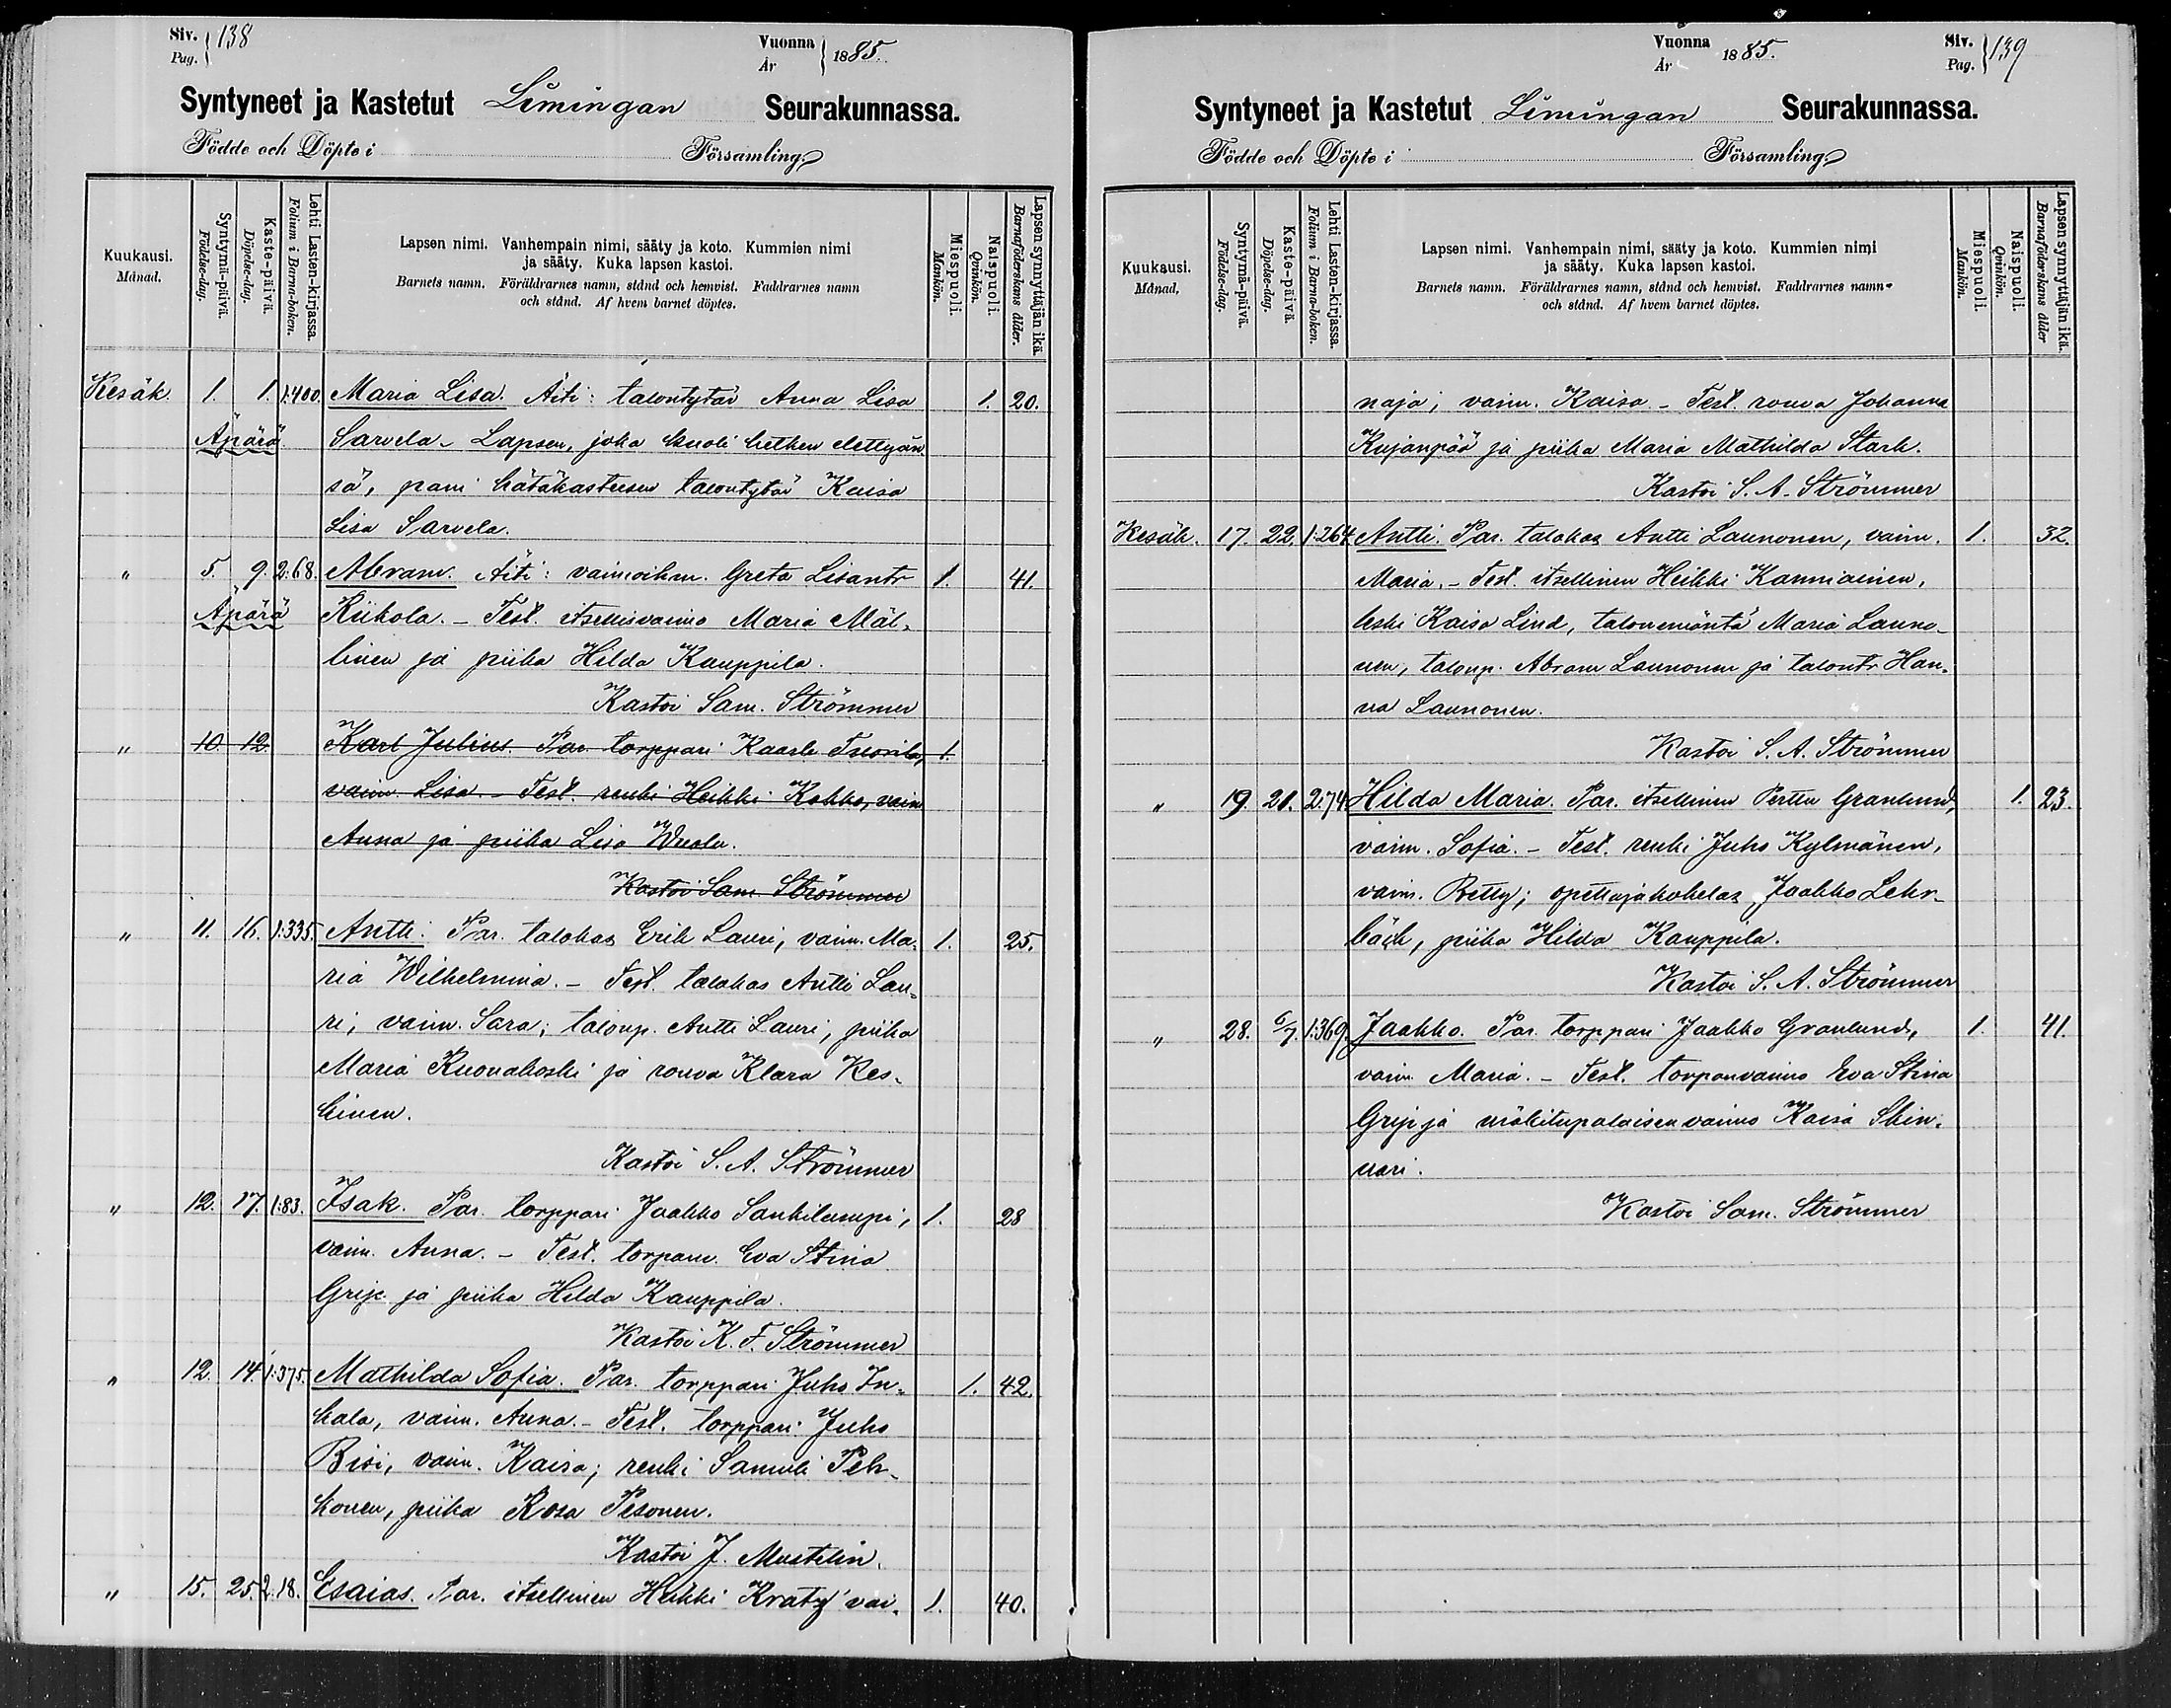 Siv. 138
Pag.
Vuonna 1885.
År
Syntyneet ja Kastetut Limingan Seurakunnassa.
Födde och Döpte i Församling.
Kuukausi.
Månad.
Syntymä-päivä.
Födelse-dag.
Kaste-päivä.
Döpelse-dag.
Lehti Lasten-kirjassa.
Folium i Barna-boken.
Lapsen nimi. Vanhempain nimi, sääty ja koto. Kummien nimi
ja sääty. Kuka lapsen kastoi.
Barnets namn. Föräldrarnes namn, stånd och hemvist. Faddrarnes namn
och stånd. Af hvem barnet döptes.
Miespuoli.
Mankön.
Naispuoli.
Qvinkön.
Lapsen synnyttäjän ikä.
Barnaföderskans ålder.
Kesäk. 1. 1. 1:400. Maria Lisa. Äiti: talontytär Anna Lisa 1. 20.
Äpärä Sarvela. Lapsen, joka kuoli hetken elettyän
sä, pani hätäkasteesen talontytär Kaisa
Lisa Sarvela.
" 5. 9. 2:68. Abram. Äiti: vaimoihm. Greta Lisantr 1. 41.
Äpärä Riikola. - Test. itsellisvaimo Maria Mäl-
linen ja piika Hilda Kauppila.
Kastoi Sam. Strömmer
" 10. 12. Karl Julius. Par. torppari Kaarle Tuorila, 1.
vaim Lisa. - Test. renki Heikki Kokko, vaim
Anna ja piika Lisa Wuolu.
Kastoi Sam Strömmer
" 11. 16. 1:335. Antti. Par. talokas Erik Lauri, vaim. Ma- 1. 25.
ria Wilhelmina. - Test. talokas Antti Lau-
ri, vaim. Sara; talonp. Antti Lauri, piika
Maria Ruonakoski ja rouva Klara Kes-
kinen.
Kastoi S. A. Strömmer
" 12. 17. 1:83. Isak. Par. torppari Jaakko Sankilampi, 1. 28
vaim. Anna. - Test. torpanv. Eva Stina
Grip ja piika Hilda Kauppila.
Kastoi K. F. Strömmer
" 12. 14. 1:375. Mathilda Sofia. Par. torppari Juho In- 1. 42.
kala, vaim. Anna. - Test. torppari Juho
Bisi, vaim. Kaisa; renki Samuli Peh-
konen, piika Rosa Pesonen.
Kastoi J. Mustelin.
" 15. 25. 2:18. Esaias. Par. itsellinen Heikki Kräty vai- 1. 40.
Vuonna 1885.
År
Siv. 139
Pag.
Syntyneet ja Kastetut Limingan Seurakunnassa.
Födde och Döpte i Församling.
Kuukausi.
Månad.
Syntymä-päivä.
Födelse-dag.
Kaste-päivä.
Döpelse-dag.
Lehti Lasten-kirjassa.
Folium i Barna-boken.
Lapsen nimi. Vanhempain nimi, sääty ja koto. Kummien nimi
ja sääty. Kuka lapsen kastoi.
Barnets namn. Föräldrarnes namn, stånd och hemvist. Faddrarnes namn
och stånd. Af hvem barnet döptes.
Miespuoli.
Mankön.
Naispuoli.
Qvinkön.
Lapsen synnyttäjän ikä.
Barnaföderskans ålder
naja, vaim. Kaisa. - Test. rouva Johanna
Kujanpää ja piika Maria Mathilda Stark.
Kastoi S. A. Strömmer
Kesäk. 17. 22. 1:264. Antti. Par. talokas Antti Launonen, vaim. 1. 32.
Maria. - Test. itsellinen Heikki Kanniainen,
leski Kaisa Lind, talonemäntä Maria Launo-
nen, talonp. Abram Launonen ja talontr Han-
na Launonen.
Kastoi S. A. Strömmer
" 19. 21. 2:74. Hilda Maria. Par. itsellinen Perttu Granlund, 1. 23.
vaim. Sofia. - Test. renki Juho Kylmänen,
vaim. Betty; opettajakokelas Jaakko Lehr-
bäck, piika Hilda Kauppila.
Kastoi S. A. Strömmer
" 28. 6/7. 1:369. Jaakko. Par. torppari Jaakko Granlund, 1. 41.
vaim. Maria. - Test. torpanvaimo Eva Stina
Grip ja mäkitupalaisen vaimo Kaisa Skin-
nari.
Kastoi Sam. Strömmer